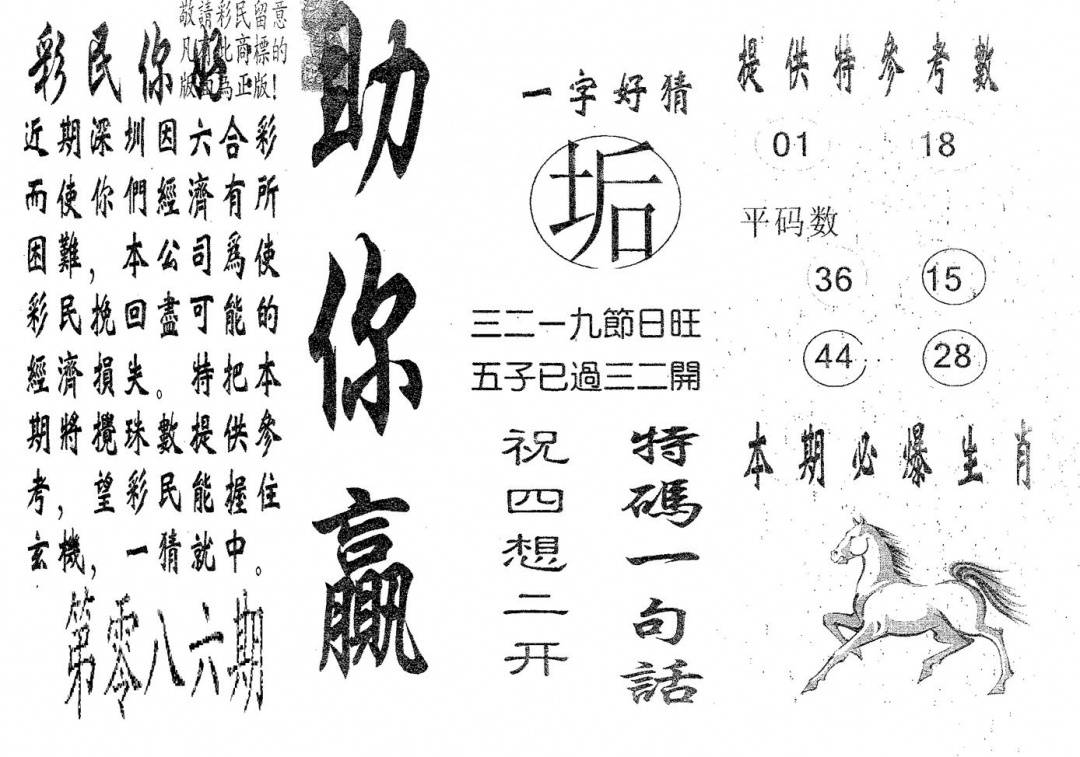 敬請彩民留意
凡高標的
版為正版!
彩民你好
近期深圳因六合彩
而使你們經濟有所
困難，本公司爲使
彩民挽回盡可能的
經濟損失。特把本
期將攪珠數提供參
考，望彩民能握住
玄機，一猜就中。
第零八六期
助你贏
一字好猜
垢
三二一九節日旺
五子已過三二開
特碼一句話
祝四想二开
提供特參考數
01 18
平码数
36 15
44 28
本期必爆生肖